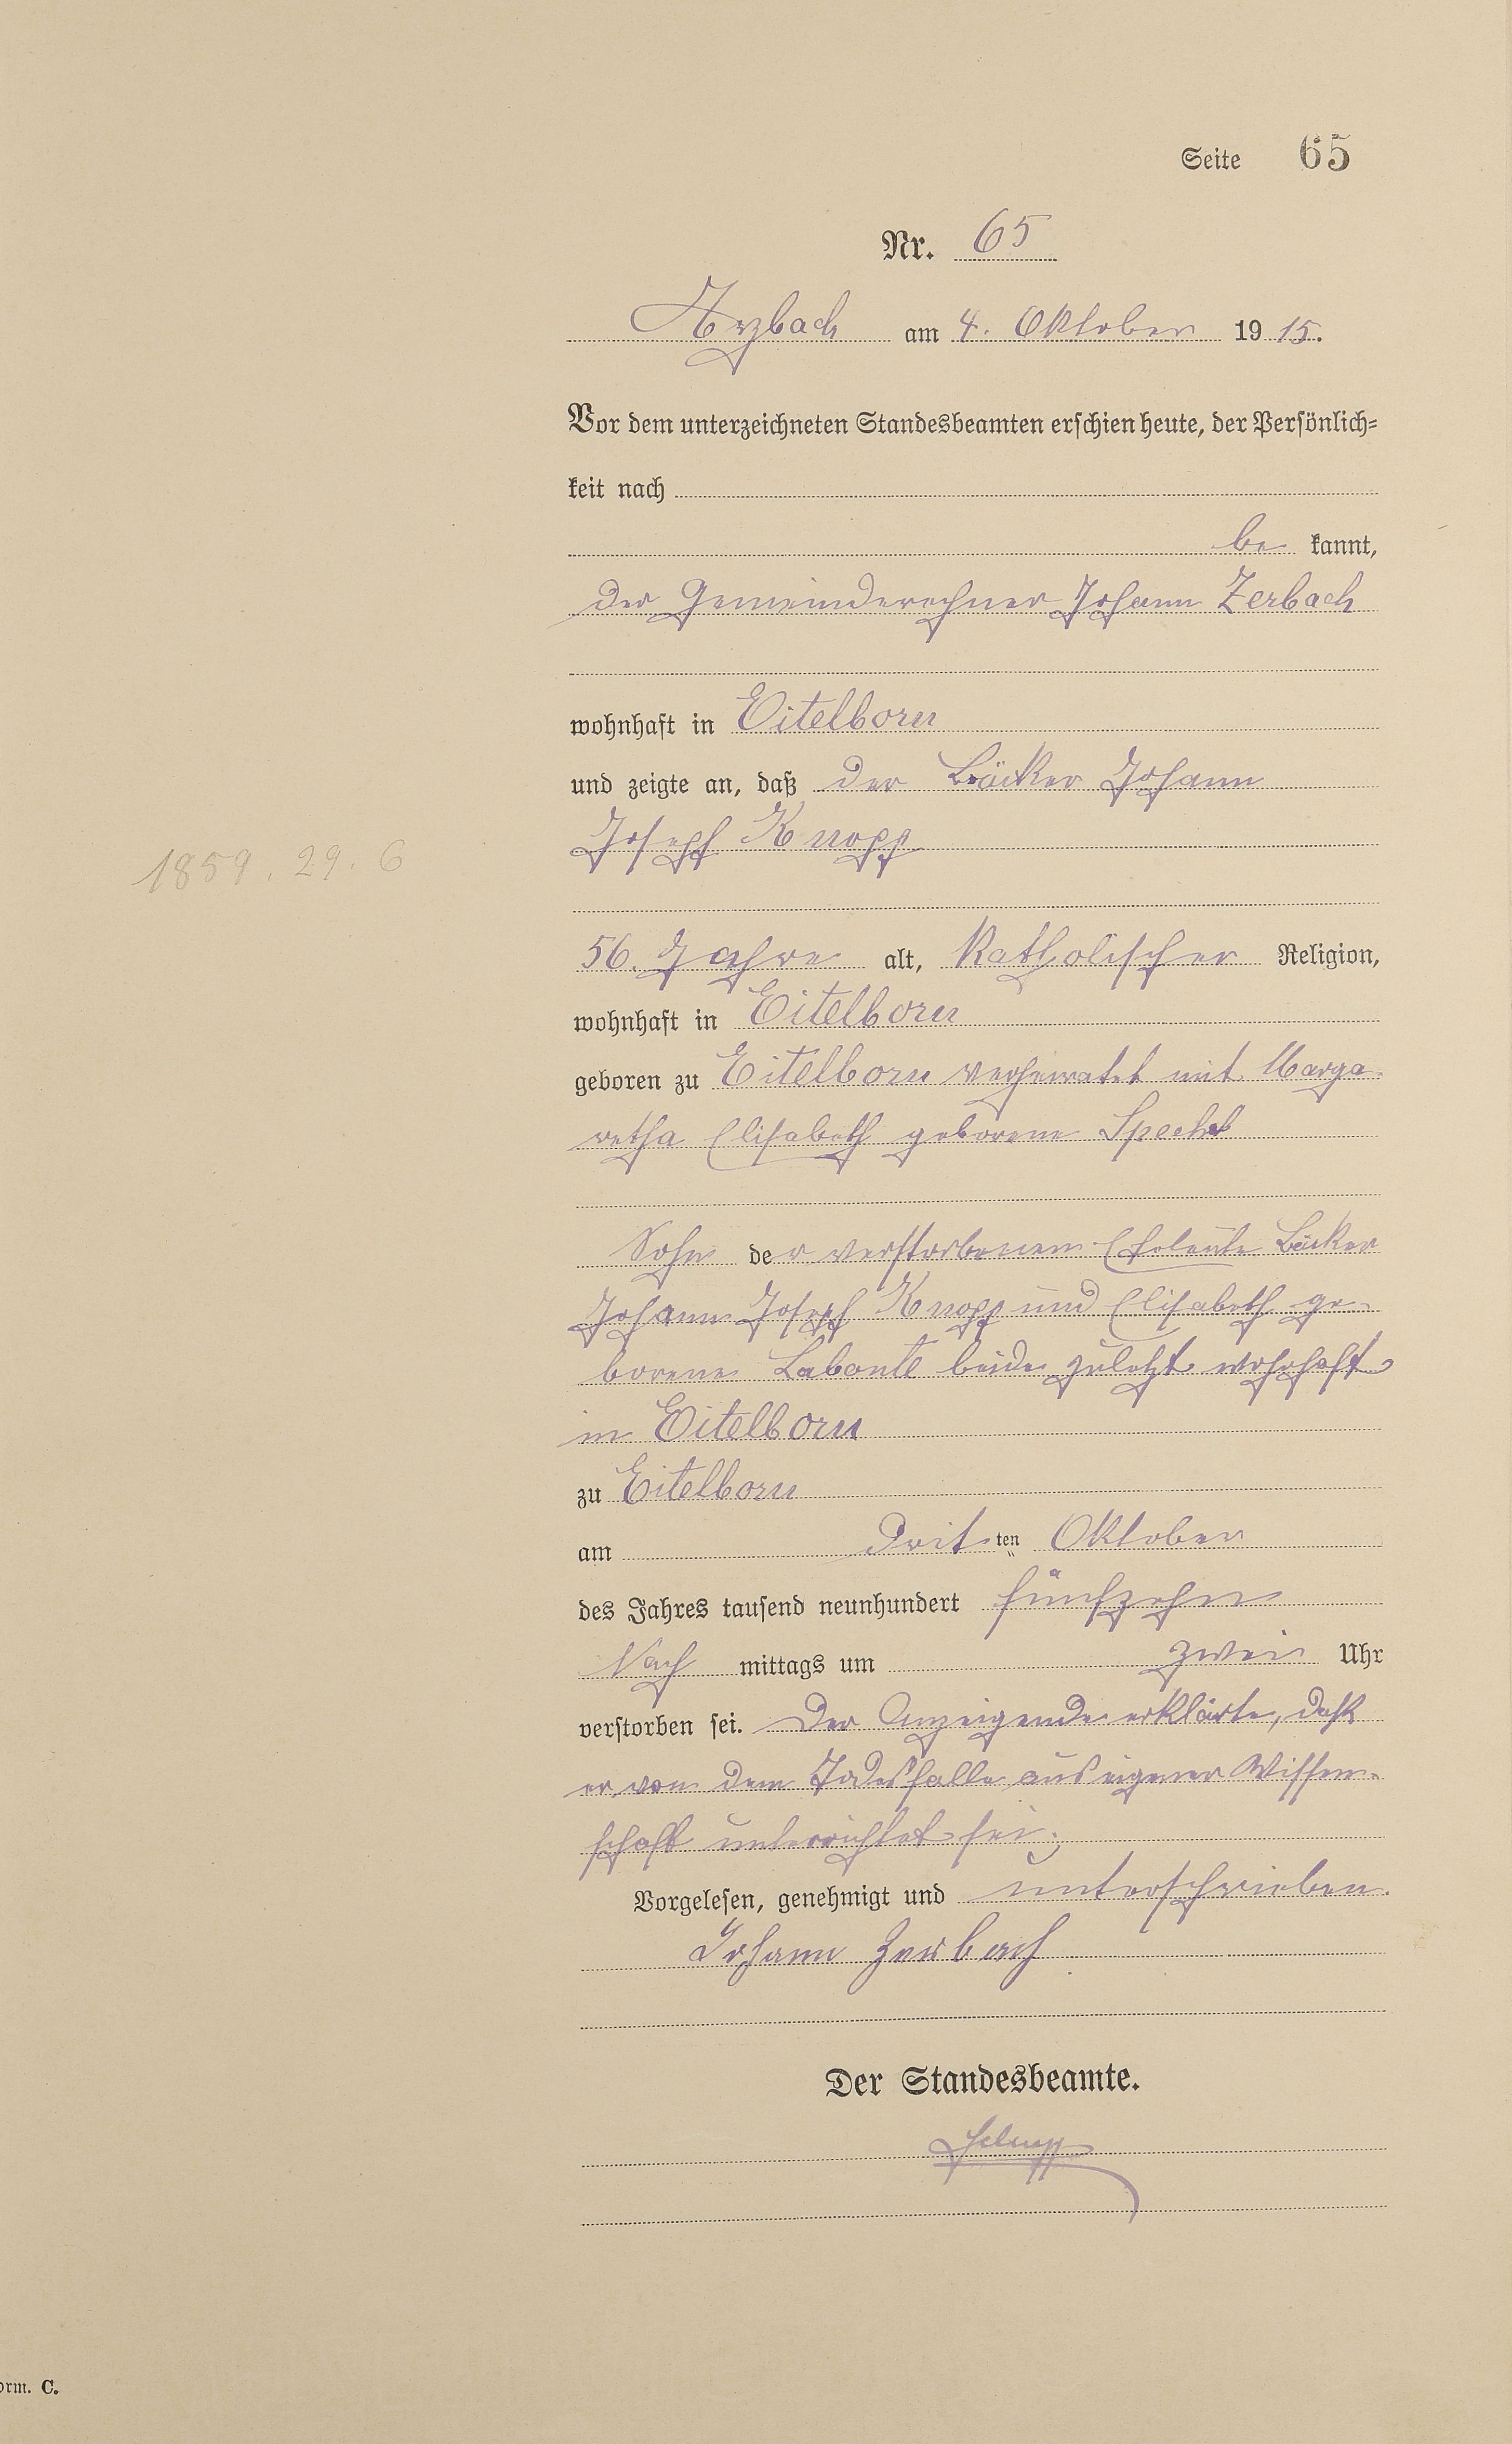 Seite 65
Nr. 65
Arzbach am 4. Oktober 1915.
Vor dem unterzeichneten Standesbeamten erschien heute, der Persönlich=
keit nach
be kannt,
der Gemeinderechner Johann Zerbach
wohnhaft in Eitelborn
und zeigte an, daß der Bäcker Johann
Joseph Knopp
1859. 29. 6
56 Jahre alt, katholischer Religion,
wohnhaft in Eitelborn
geboren zu Eitelborn verheiratet mit Marga-
retha Elisabeth geborene Specht
Sohn der verstorbenen Eheleute Bäcker
Johann Joseph Knopp und Elisabeth ge-
borene Labonte beide zuletzt wohnhaft
in Eitelborn
zu Eitelborn
am dritten Oktober
des Jahres tausend neunhundert fünfzehn
Nach mittags um zwei Uhr
verstorben sei. Der Anzeigende erklärte, daß
er von dem Todesfalle aus eigener Wissen-
schaft unterrichtet sei.
Vorgelesen, genehmigt und unterschrieben.
Johann Zerbach
Der Standesbeamte.
orm. C.